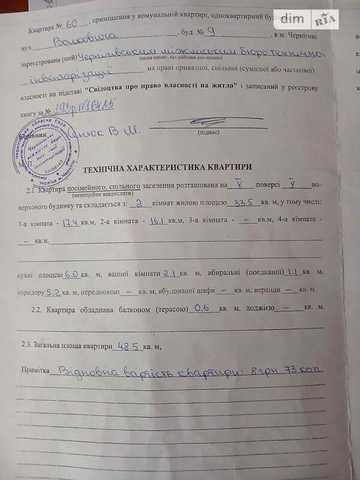 Квартира № 60 , приміщення у комунальній квартирі, одноквартирний
dim RIA
вул. Волковича буд. № 9 , в м. Чернігові
зареєстрована (ний) Чернігівським міжміським бюро технічної
інвентаризації на праві приватної, спільної (сумісної або часткової)
власності на підставі "Свідоцтва про право власності на житло" і записаний у реєстрову
книгу за №
В. М.
(підпис)
ТЕХНІЧНА ХАРАКТЕРИСТИКА КВАРТИРИ
2.1. Квартира посімейного, спільного заселення розташована на V поверсі V по-
(непотрібне викреслити)
верхового будинку та складається з: 2 кімнат жилою площею 33,5 кв. м, у тому числі:
1-а кімната - 17,4 кв.м, 2-а кімната - 16,1 кв.м, 3-а кімната - – кв.м, 4-а кімната -
– кв.м.
кухні площею 6,0 кв. м, ванної кімнати 2,1 кв. м, вбиральні (поєднаної) 1,1 кв. м,
коридору 5,2 кв. м, передпокою – кв. м, вбудованої шафи – кв. м, веранди – кв. м.
2.2. Квартира обладнана балконом (терасою) 0,6 кв. м, лоджією – кв. м.
2.3. Загальна площа квартири 48,5 кв. м,
Примітка Відновна вартість квартири: 8 грн 73 коп